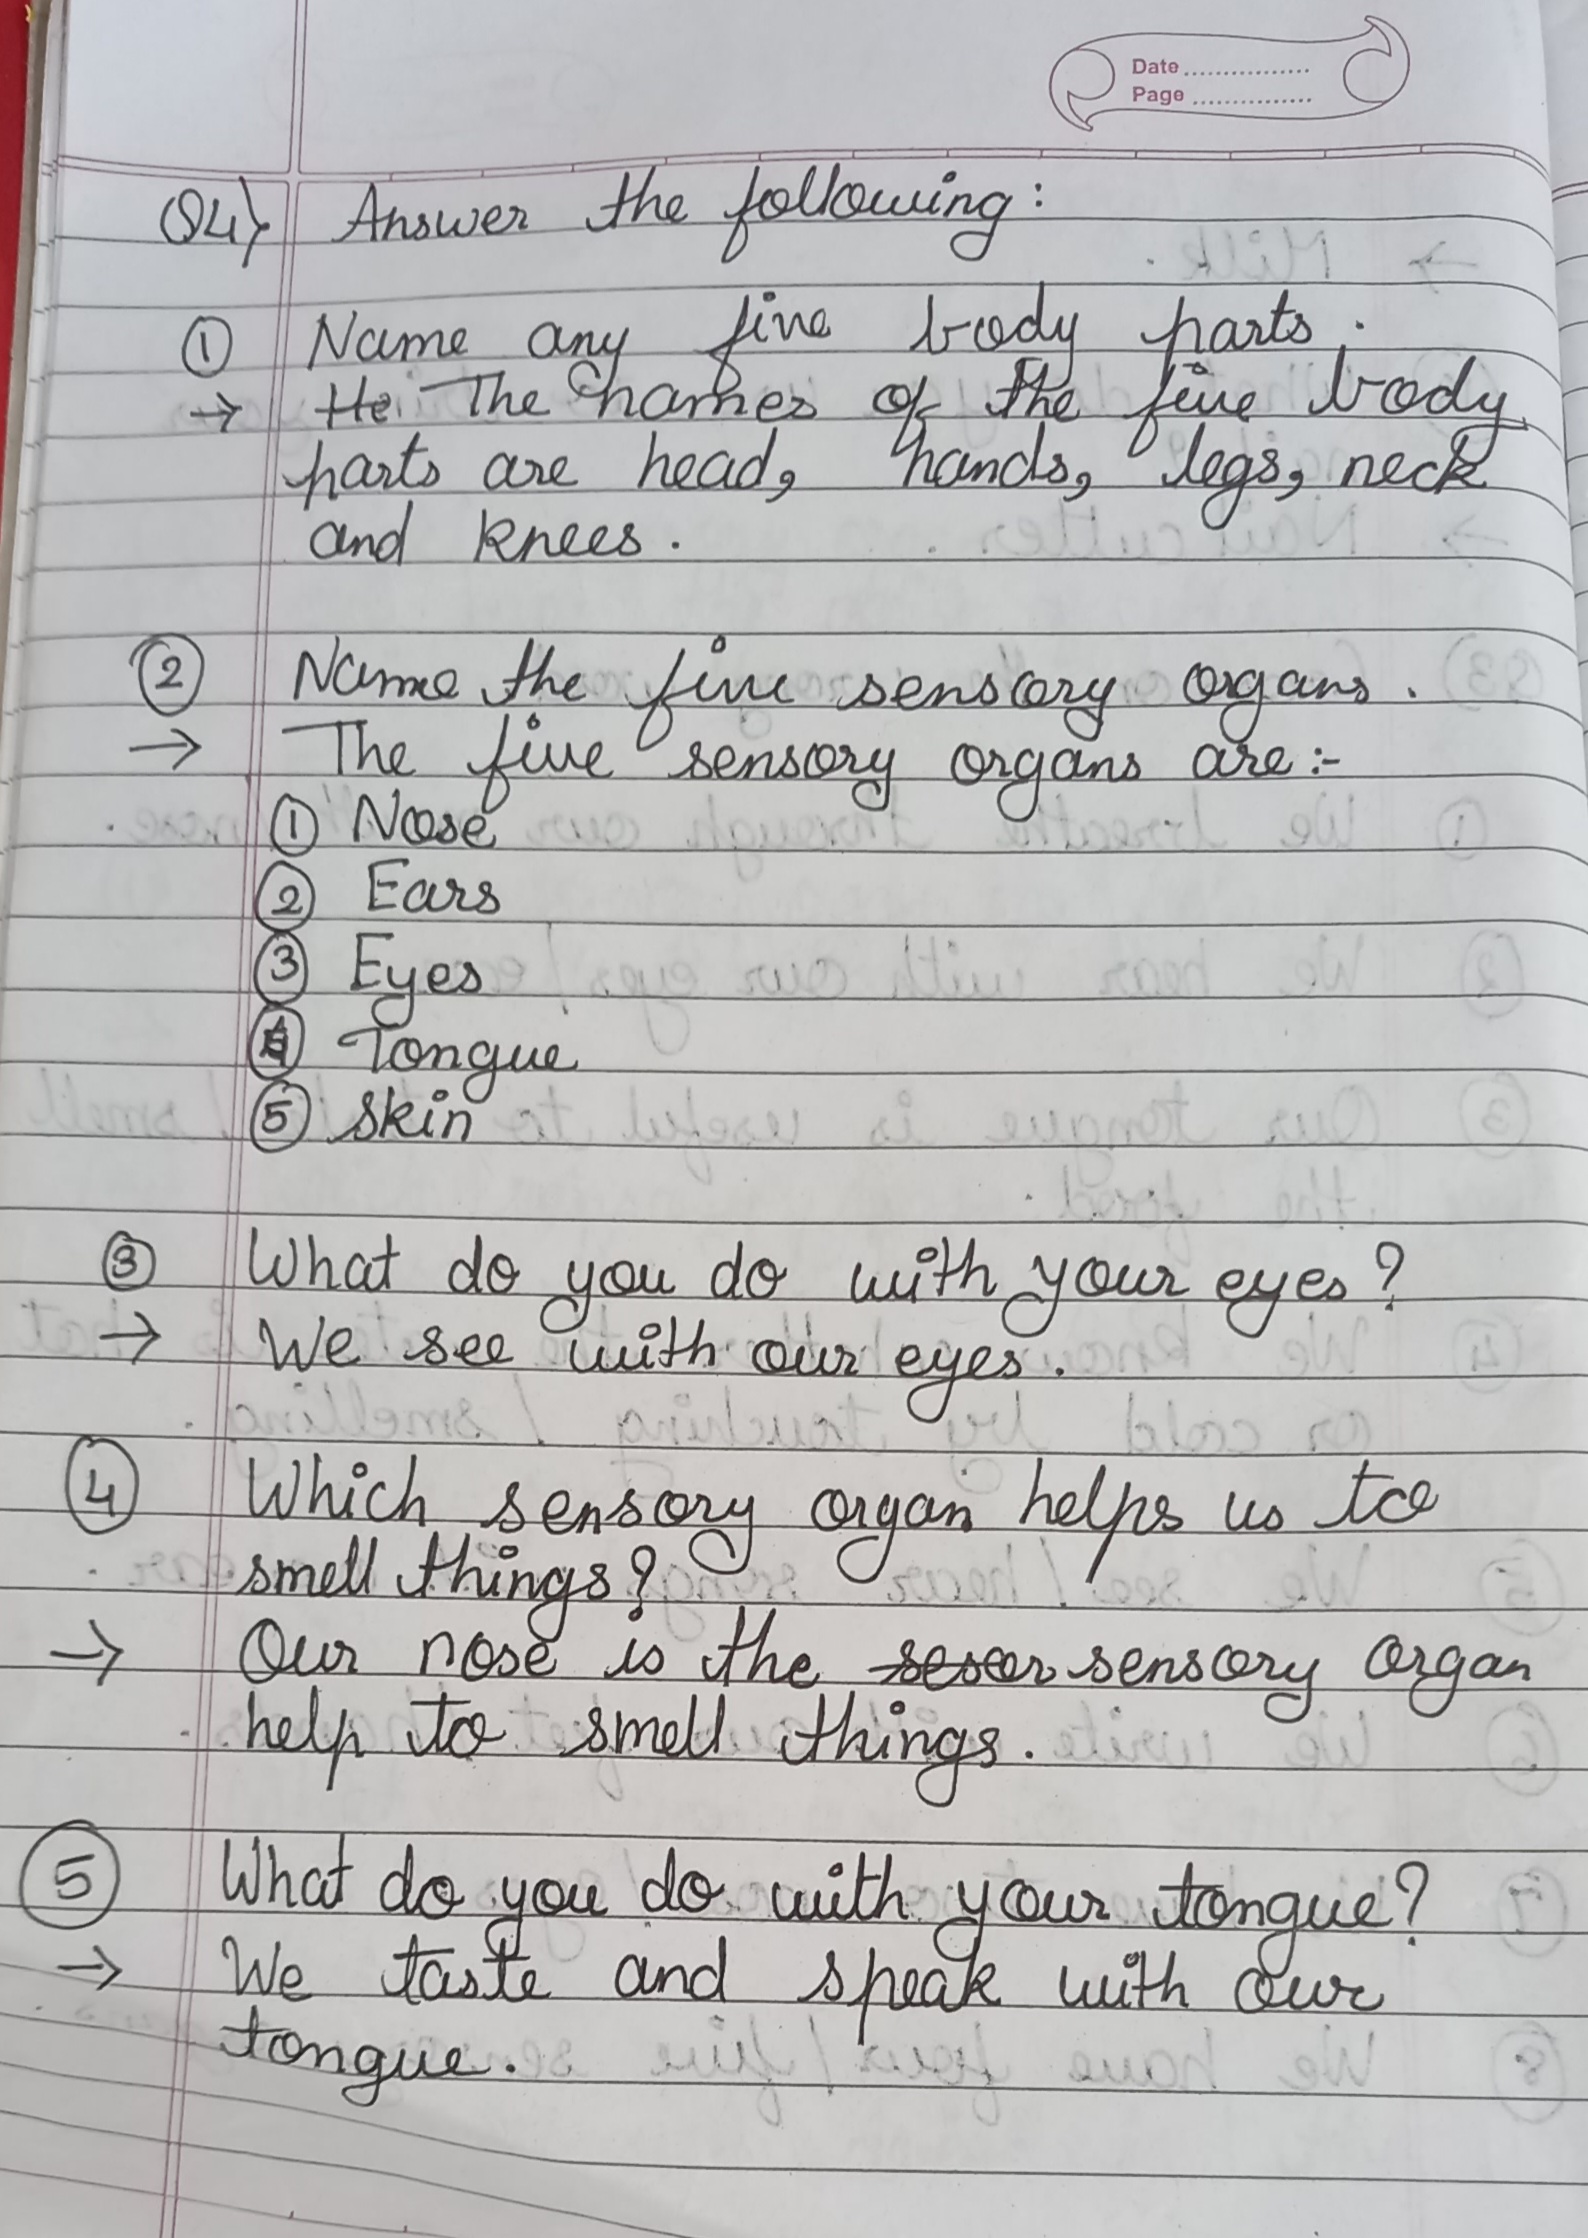 Date ................
Page ................
Q4) Answer the following:
① Name any five body parts.
→ He The names of the five body
parts are head, hands, legs, neck
and knees.
② Name the five sensory organs.
→ The five sensory organs are:-
① Nose
② Ears
③ Eyes
④ Tongue
⑤ Skin
③ What do you do with your eyes?
→ We see with our eyes.
④ Which sensory organ helps us to
smell things?
→ Our nose is the sensory organ
help to smell things.
⑤ What do you do with your tongue?
→ We taste and speak with our
tongue.